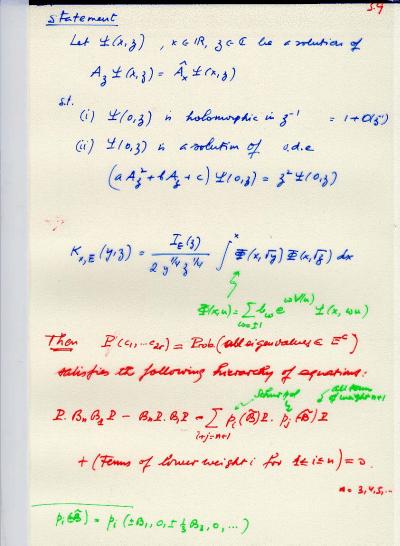 S.9
Statement
Let Ψ(x,z), x∈ℝ, z∈ℂ be a solution of
A_z Ψ(x,z) = Â_x Ψ(x,z)
s.t.
(i) Ψ(0,z) is holomorphic in z⁻¹ = 1+O(z⁻¹)
(ii) Ψ(0,z) is a solution of o.d.e
(a A_z² + b A_z + c) Ψ(0,z) = z² Ψ(0,z)
K_{x,E}(y,z) = I_E(z) / 2 y^{1/4} z^{1/4} ∫^x Φ(x,√y) Φ(x,√z) dx
Φ(x,u) = Σ_{ω=±1} b_ω e^{ωV(u)} Ψ(x,ωu)
Then P(c₁,...c_{2r}) = Prob(all eigenvalues ∈ E^c)
satisfies the following hierarchy of equations:
Schur pol all terms of weight n+1
P. B_n B_1 P − B_n P. B_1 P = Σ_{i+j=n+1} p_i(B̂) P. p_j(B̂) P
+ (Terms of lower weight i for 1≤i≤n) = 0.
n = 3,4,5,...
p_i(±B̂) = p_i(±B_1, 0, ±⅓B_3, 0, ...)